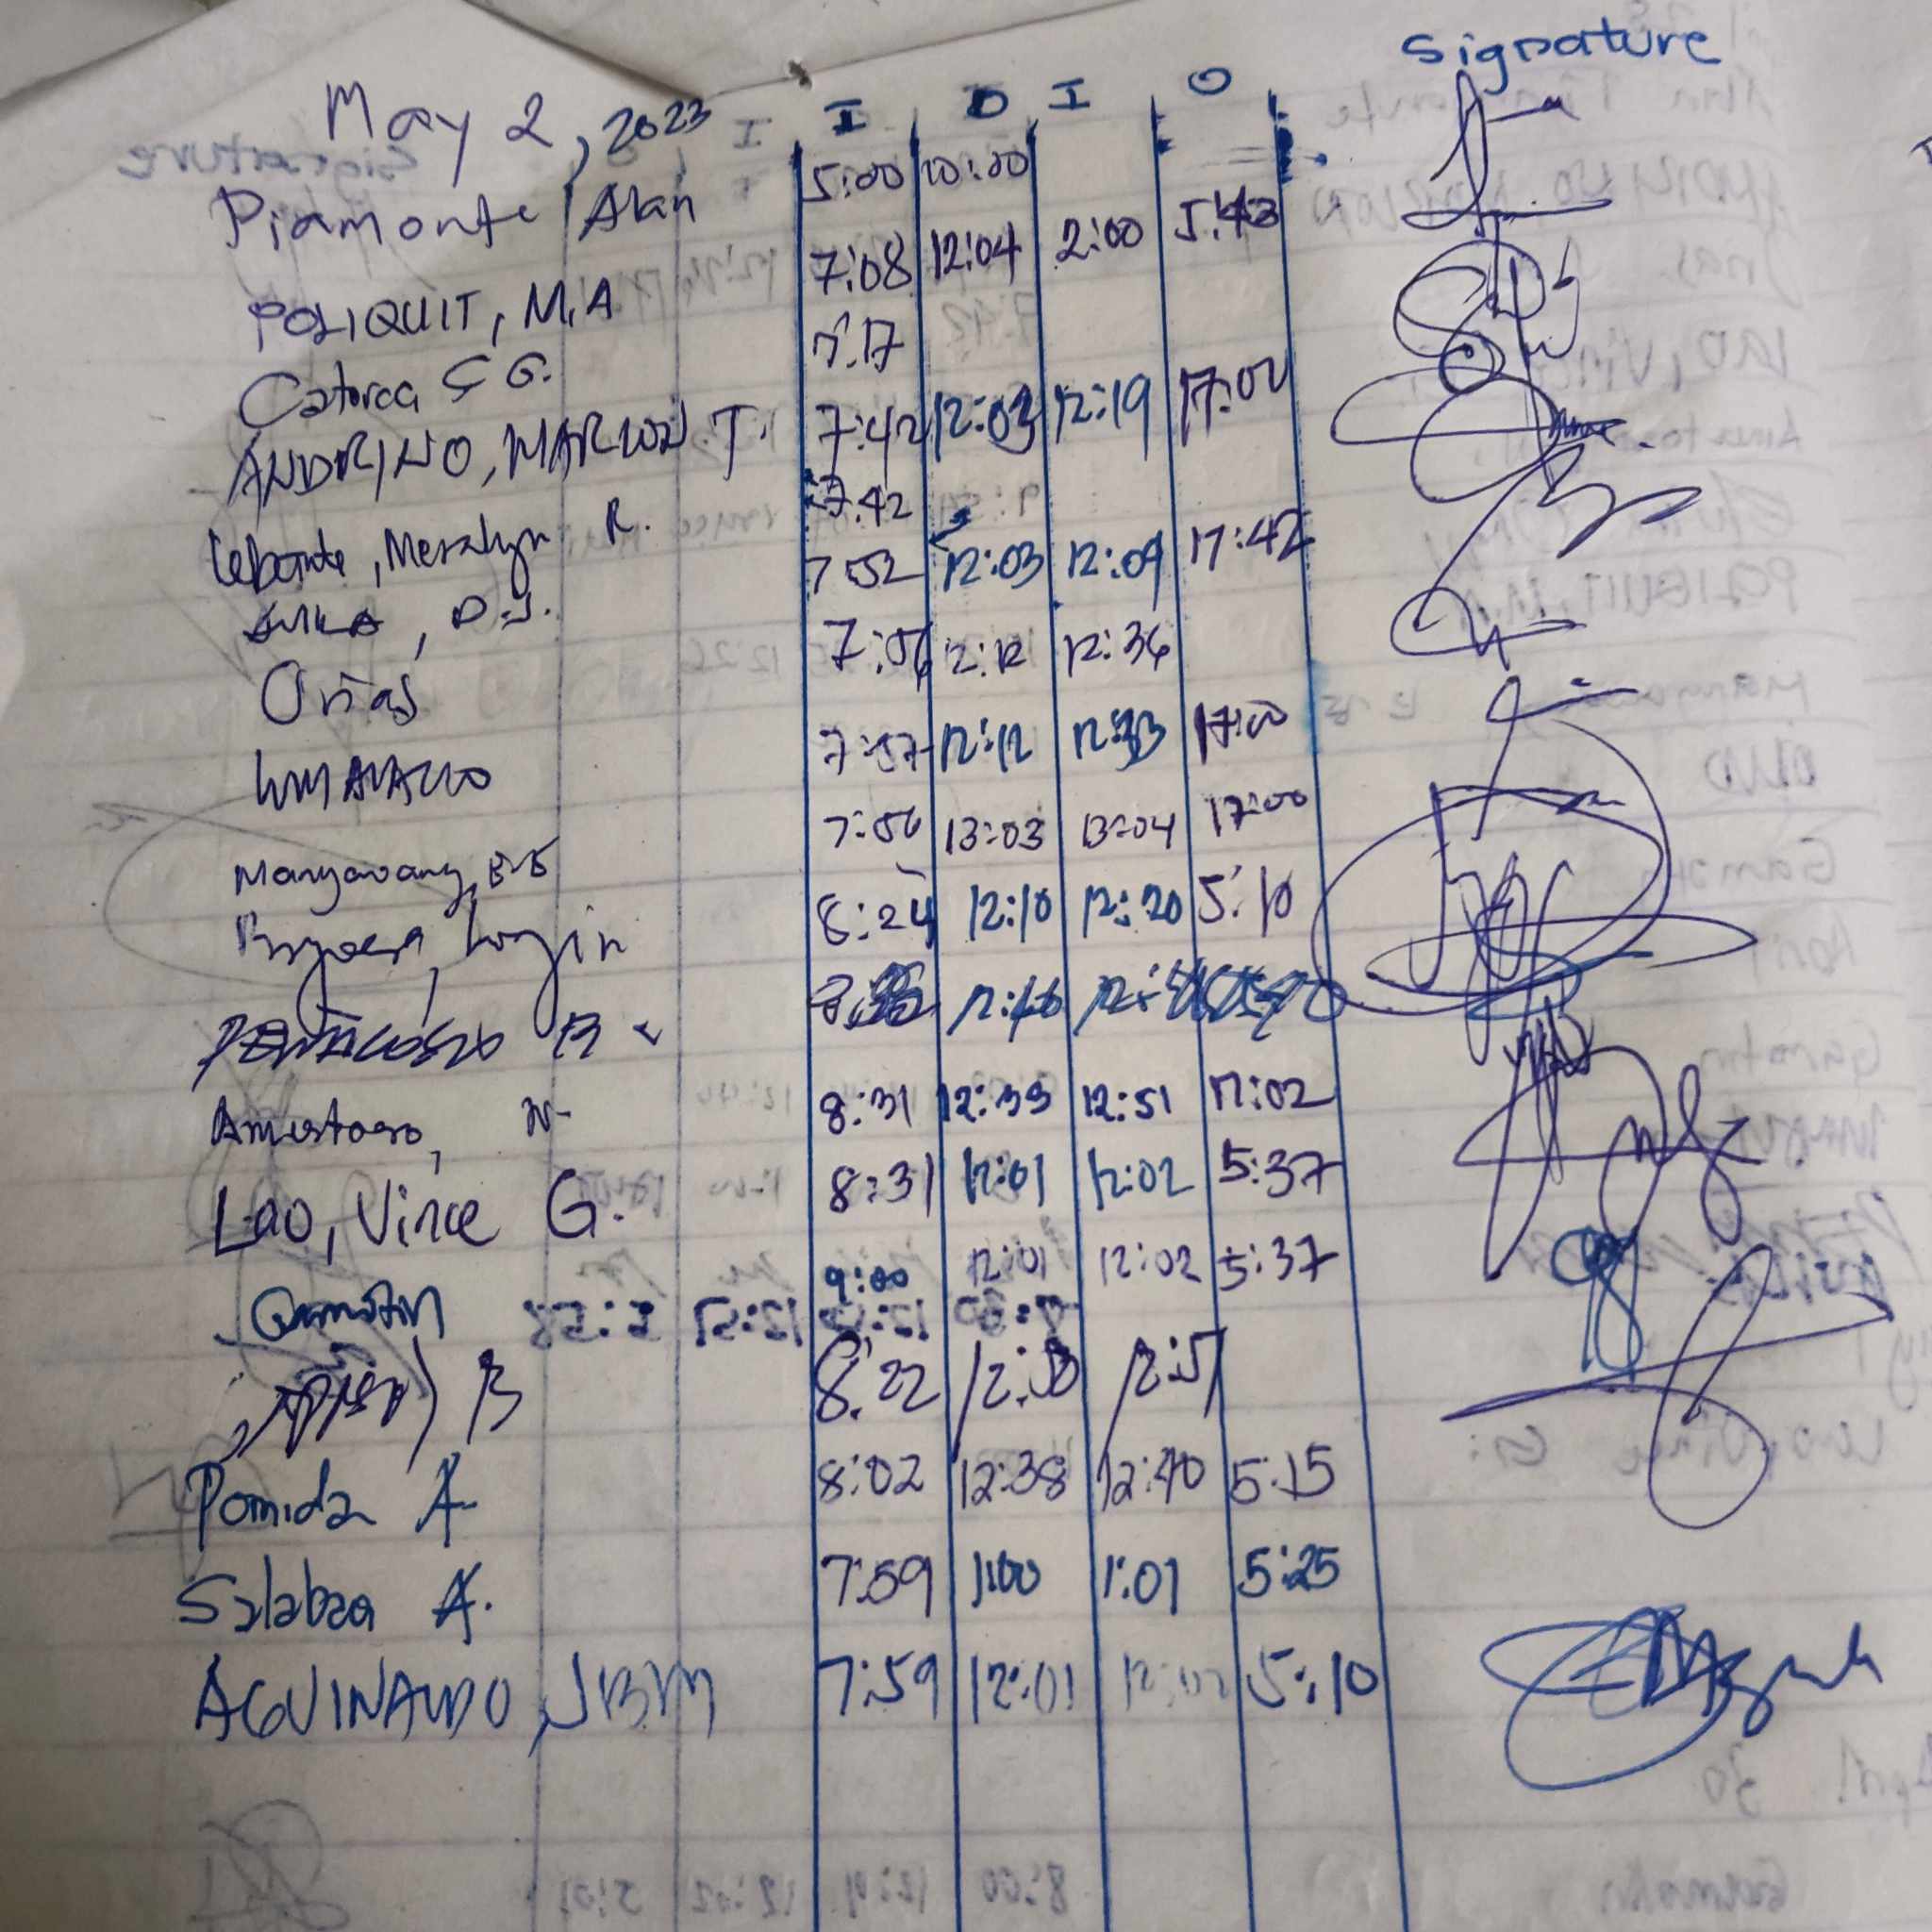 Signature
May 2, 2023 I O I O
Piamonte Alan 5:00 10:00
POLIQUIT, M.A 7:08 12:04 2:00 5:43
Catorca S G. 7:17
ANDRINO, MARLON T. 7:42 12:03 12:19 17:02
Lebante, Meralyn R. 7:42
D.J. 7:52 12:03 12:09 17:42
Orias 7:56 12:12 12:36
LUMAVACLO 7:57 12:12 12:33 17:00
Mangawang, E-E 7:56 13:03 13:04 17:00
8:24 12:10 12:20 5:10
12:46
Amestoso, N- 8:31 12:39 12:51 17:02
Lao, Vince G. 8:31 12:01 12:02 5:37
Gamotin 9:00 12:01 12:02 5:37
B 8:22 12:50 12:51
Pomida A. 8:02 12:38 12:40 5:15
Salabaa A. 7:59 1:00 1:01 5:25
AGUINALDO, JBM 7:59 12:01 12:02 5:10